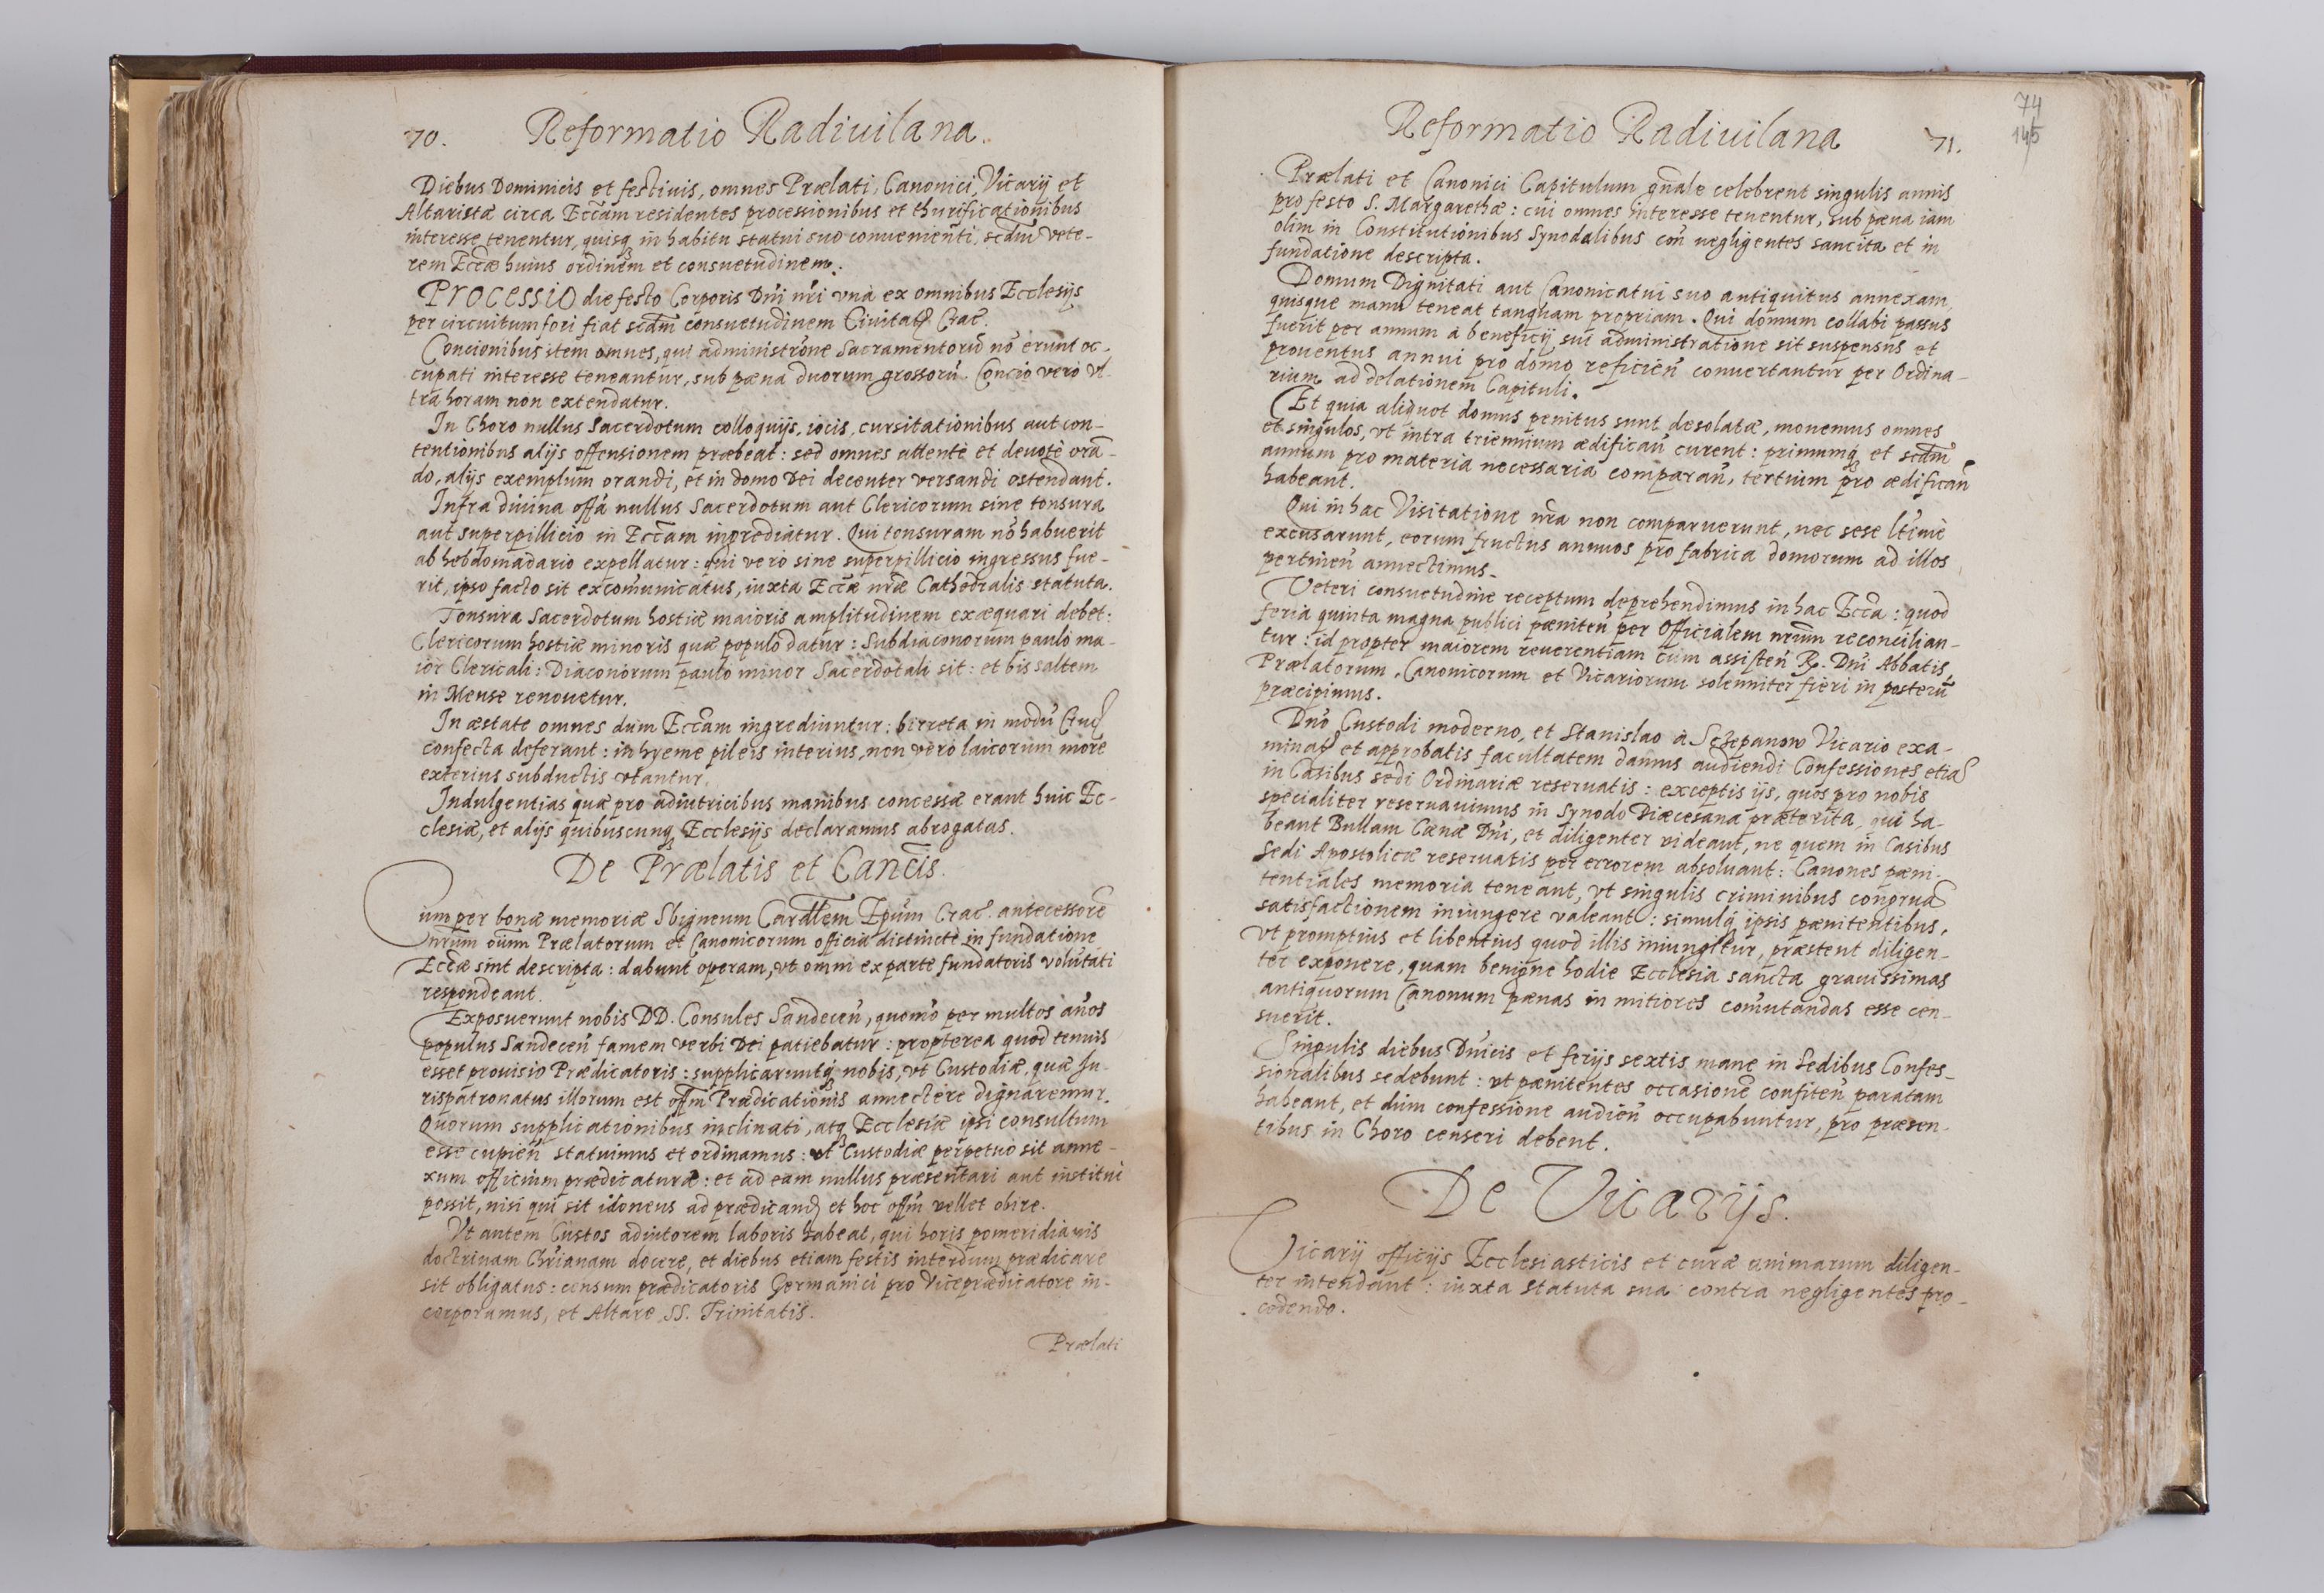 70. Reformatio Radiuilana.
Diebus Dominicis et festiuis, omnes Prælati, Canonici, Vicarij et
Altaristæ circa Eccam residentes processionibus et thurificationibus
interesse tenentur, quisq in habitu statui suo conuenienti, secdm vete-
rem Eccæ huius ordinem et consuetudinem.
Processio die festo Corporis Dni nri vna ex omnibus Ecclesijs
per circuitum fori fiat secdm consuetudinem Ciuitat Crac.
Concionibus item omnes, qui administrone Sacramentoru no erunt oc-
cupati interesse teneantur, sub pæna duorum grossoru. Concio vero vl-
tra horam non extendatur.
In Choro nullus Sacerdotum colloquijs, iocis, cursitationibus aut con-
tentionibus alijs offensionem præbeat: sed omnes attentè et deuotè ora-
do, alijs exemplum orandi, et in domo Dei decenter versandi ostendant.
Infra diuina offa nullus Sacerdotum aut Clericorum sine tonsura
aut superpillicio in Eccam ingrediatur. Qui tonsuram no habuerit
ab hebdomadario expellatur: qui vero sine superpillicio ingressus fue-
rit, ipso facto sit excomunicatus, iuxta Eccæ nræ Cathedralis statuta.
Tonsura Sacerdotum hostiæ maioris amplitudinem exæquari debet:
Clericorum hostiæ minoris quæ populo datur: Subdiaconorum paulò ma-
ior Clericali: Diaconorum paulo minor Sacerdotali sit: et bis saltem
in Mense renouetur.
In æstate omnes dum Eccam ingrediuntur: birreta in modu Cruc
confecta deferant: in hyeme pileis interius, non verò laicorum more
exterius subductis vtantur.
Indulgentias quæ pro adiutricibus manibus concessæ erant huic Ec-
clesiæ, et alijs quibuscunq Ecclesijs declaramus abrogatas.
De Prælatis et Cancis.
Cum per bonæ memoriæ Sbigneum Cardlem Epum Crac. antecessore
nrum oium Prælatorum et Canonicorum officia distincte in fundatione
Eccæ sint descripta: dabunt operam, vt omni ex parte fundatoris volutati
respondeant.
Exposuerunt nobis DD. Consules Sandecen, quomo per multos anos
populus Sandecen famem verbi Dei patiebatur: propterea quod tenuis
esset prouisio Prædicatoris: supplicaruntq nobis, vt Custodiæ, quæ Ju-
rispatronatus illorum est offm Prædicationis annectere dignaremur.
Quorum supplicationibus inclinati, atq Ecclesiæ ipsi consultum
esse cupien statuimus et ordinamus: vt Custodiæ perpetuo sit anne-
xum officium prædicaturæ: et ad eam nullus præsentari aut institui
possit, nisi qui sit idoneus ad prædicand et hoc offm vellet obire.
Vt autem Custos adiutorem laboris habeat, qui horis pomeridianis
doctrinam Chrianam docere, et diebus etiam festis interdum prædicare
sit obligatus: censum prædicatoris Germanici pro Viceprædicatore in-
corporamus, et Altare SS. Trinitatis.
Prælati
Reformatio Radiuilana 71.
74
145
Prælati et Canonici Capitulum gnale celebrent singulis annis
pro festo S. Margarethæ: cui omnes interesse tenentur, sub pæna iam
olim in Constitutionibus Synodalibus con negligentes sancita et in
fundatione descripta.
Domum Dignitati aut Canonicatui suo antiquitus annexam
quisque manu teneat tanquam propriam. Qui domum collabi passus
fuerit per annum à beneficij sui administratione sit suspensus et
prouentus annui pro domo reficien conuertantur per Ordina-
rium ad delationem Capituli.
Et quia aliquot domus penitus sunt desolatæ, monemus omnes
et singulos, vt intra triennium ædifican curent: primumq et secdm
annum pro materia necessaria comparan, tertium pro ædifican
habeant.
Qui in hac Visitatione nra non comparuerunt, nec sese ltime
excusarunt, eorum fructus annuos pro fabrica domorum ad illos
pertinen annectimus.
Veteri consuetudine receptum deprehendimus in hac Ecca: quod
feria quinta magna publici pæniten per Officialem nrum reconcilian-
tur: id propter maiorem reuerentiam cum assisten R. Dni Abbatis,
Prælatorum, Canonicorum et Vicariorum solenniter fieri in posteru
præcipimus.
Dno Custodi moderno, et Stanislao à Sczepanow Vicario exa-
minat et approbatis facultatem damus audiendi Confessiones etia
in Casibus sedi Ordinariæ reseruatis: exceptis ijs, quos pro nobis
specialiter reseruauimus in Synodo Diæcesana præterita, qui ha-
beant Bullam Cænæ Dni, et diligenter videant, ne quem in Casibus
Sedi Apostolicæ reseruatis per errorem absoluant: Canones pæni-
tentiales memoria teneant, vt singulis criminibus congrua
satisfactionem iniungere valeant: simulq ipsis pænitentibus,
vt promptius et libentius quod illis iniungitur, præstent diligen-
ter exponere, quam benigne hodie Ecclesia sancta grauissimas
antiquorum Canonum pænas in mitiores comutandas esse cen-
suerit.
Singulis diebus Dnicis et ferijs sextis mane in Sedibus Confes-
sionalibus sedebunt: vt pænitentes occasione confiten paratam
habeant, et dum confessione audien occupabuntur, pro præsen-
tibus in Choro censeri debent.
De Vicarijs.
Vicarij officijs Ecclesiasticis et curæ animarum diligen-
ter intendant: iuxta statuta sua contra negligentes pro-
cedendo.